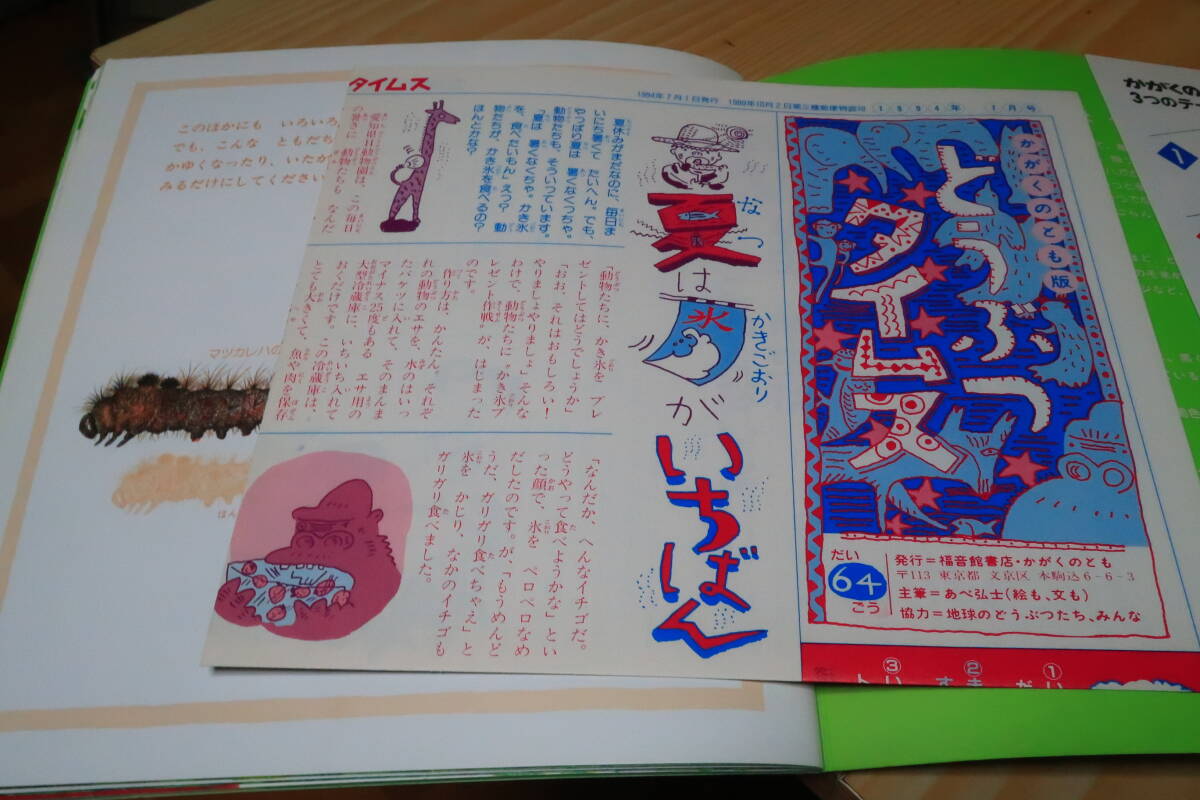 タイムス
1994年7月1日発行 1989年10月2日第三種郵便物認可 1994年 7月号
かがくのとも版
どうぶつ
タイムス
だい
64
ごう
発行=福音館書店・かがくのとも
〒113 東京都 文京区 本駒込6-6-3
主筆=あべ弘士(絵も、文も)
協力=地球のどうぶつたち、みんな
なつ
夏は
かきごおり
氷
がいちばん
夏休みがまだなのに、毎日ま
いにち暑くて たいへん。でも、
やっぱり夏は 暑くなくっちゃ。
動物たちも、そういっています。
「夏は 暑くなくちゃ。かき氷
を、食べたいもん」えっ? 動
物たちが、かき氷を食べるの?
ほんとかな?
愛知県日動物園は、この毎日
の暑さに 動物たちも なんだ
「動物たちに、かき氷を プレ
ゼントしてはどうでしょうか」
「おお、それはおもしろい!
やりましょやりましょ」そんな
わけで、動物たちに〝かき氷プ
レゼント作戦〟が、はじまった
のです。
作り方は、かんたん。それぞ
れの動物のエサを、水のはいっ
たバケツに入れて、そのまんま
マイナス25度もある エサ用の
大型冷蔵庫に、いちいち入れて
おくだけです。この冷蔵庫は、
とても大きくて、魚や肉を保存
「なんだか、へんなイチゴだ。
どうやって食べようかな」とい
った顔で、氷を ペロペロなめ
だしたのです。が、「もうめんど
うだ、ガリガリ食べちゃえ」と
氷を かじり、なかのイチゴも
ガリガリ食べました。
このほかにも いろいろ
でも、こんな ともだち
かゆくなったり、いたか
みるだけにしてください
マツカレハの
ほん
かがくの
3つのテ
①
②
③